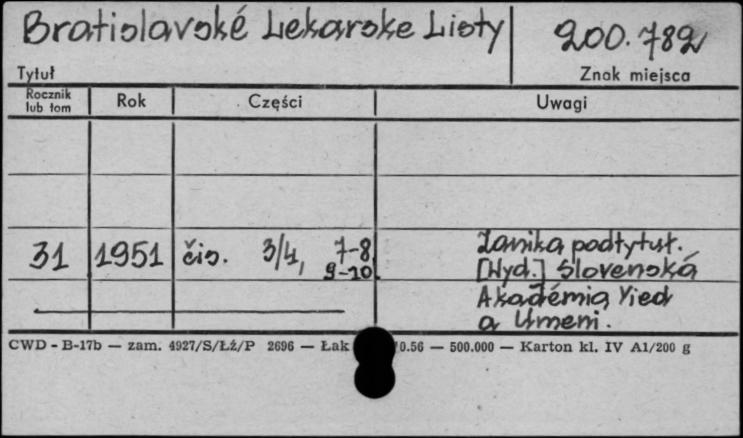 Bratislavské Lekarske Listy
200.782
Tytuł
Znak miejsca
Rocznik lub tom
Rok
Części
Uwagi
31 1951 čis. 3/4, 7-8 Zanika podtytuł.
9-10. [Wyd.] Slovenská
Akadémia Vied
a Umeni.
CWD - B-17b — zam. 4927/S/Łź/P 2696 — Łak 0.56 — 500.000 — Karton kl. IV A1/200 g